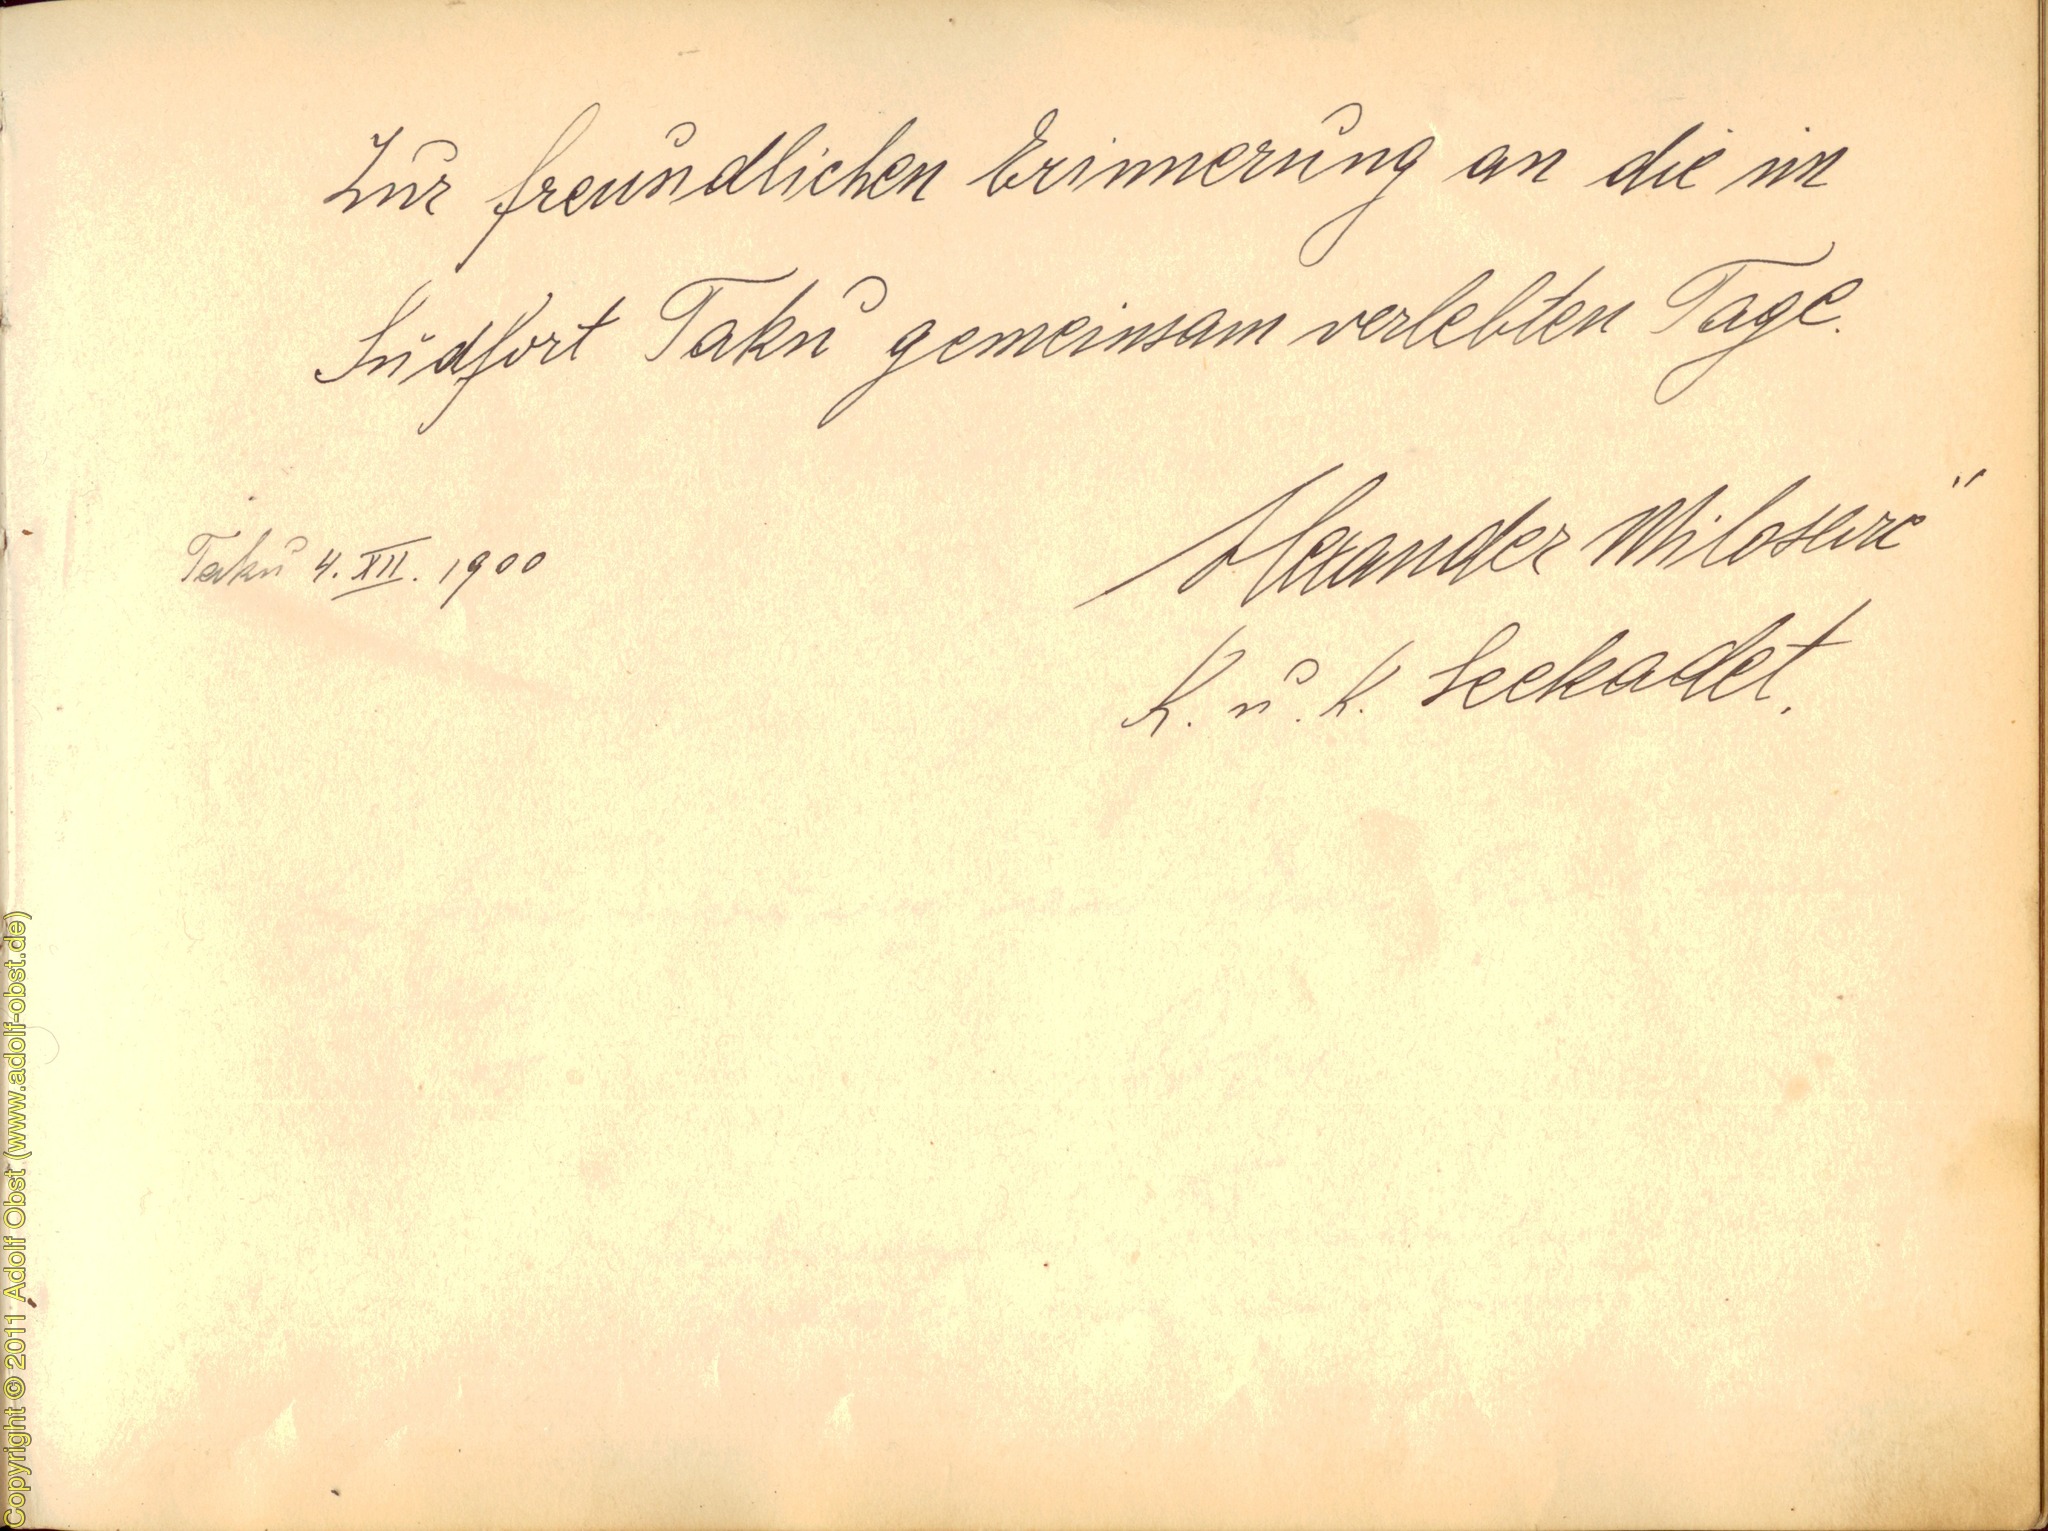 Zur freundlichen Erinnerung an die im
Südfort Taku gemeinsam verlebten Tage.
Taku 4. XII. 1900
Alexander
K. u. K. Seekadet.
Copyright © 2011 Adolf Obst (www.adolf-obst.de)